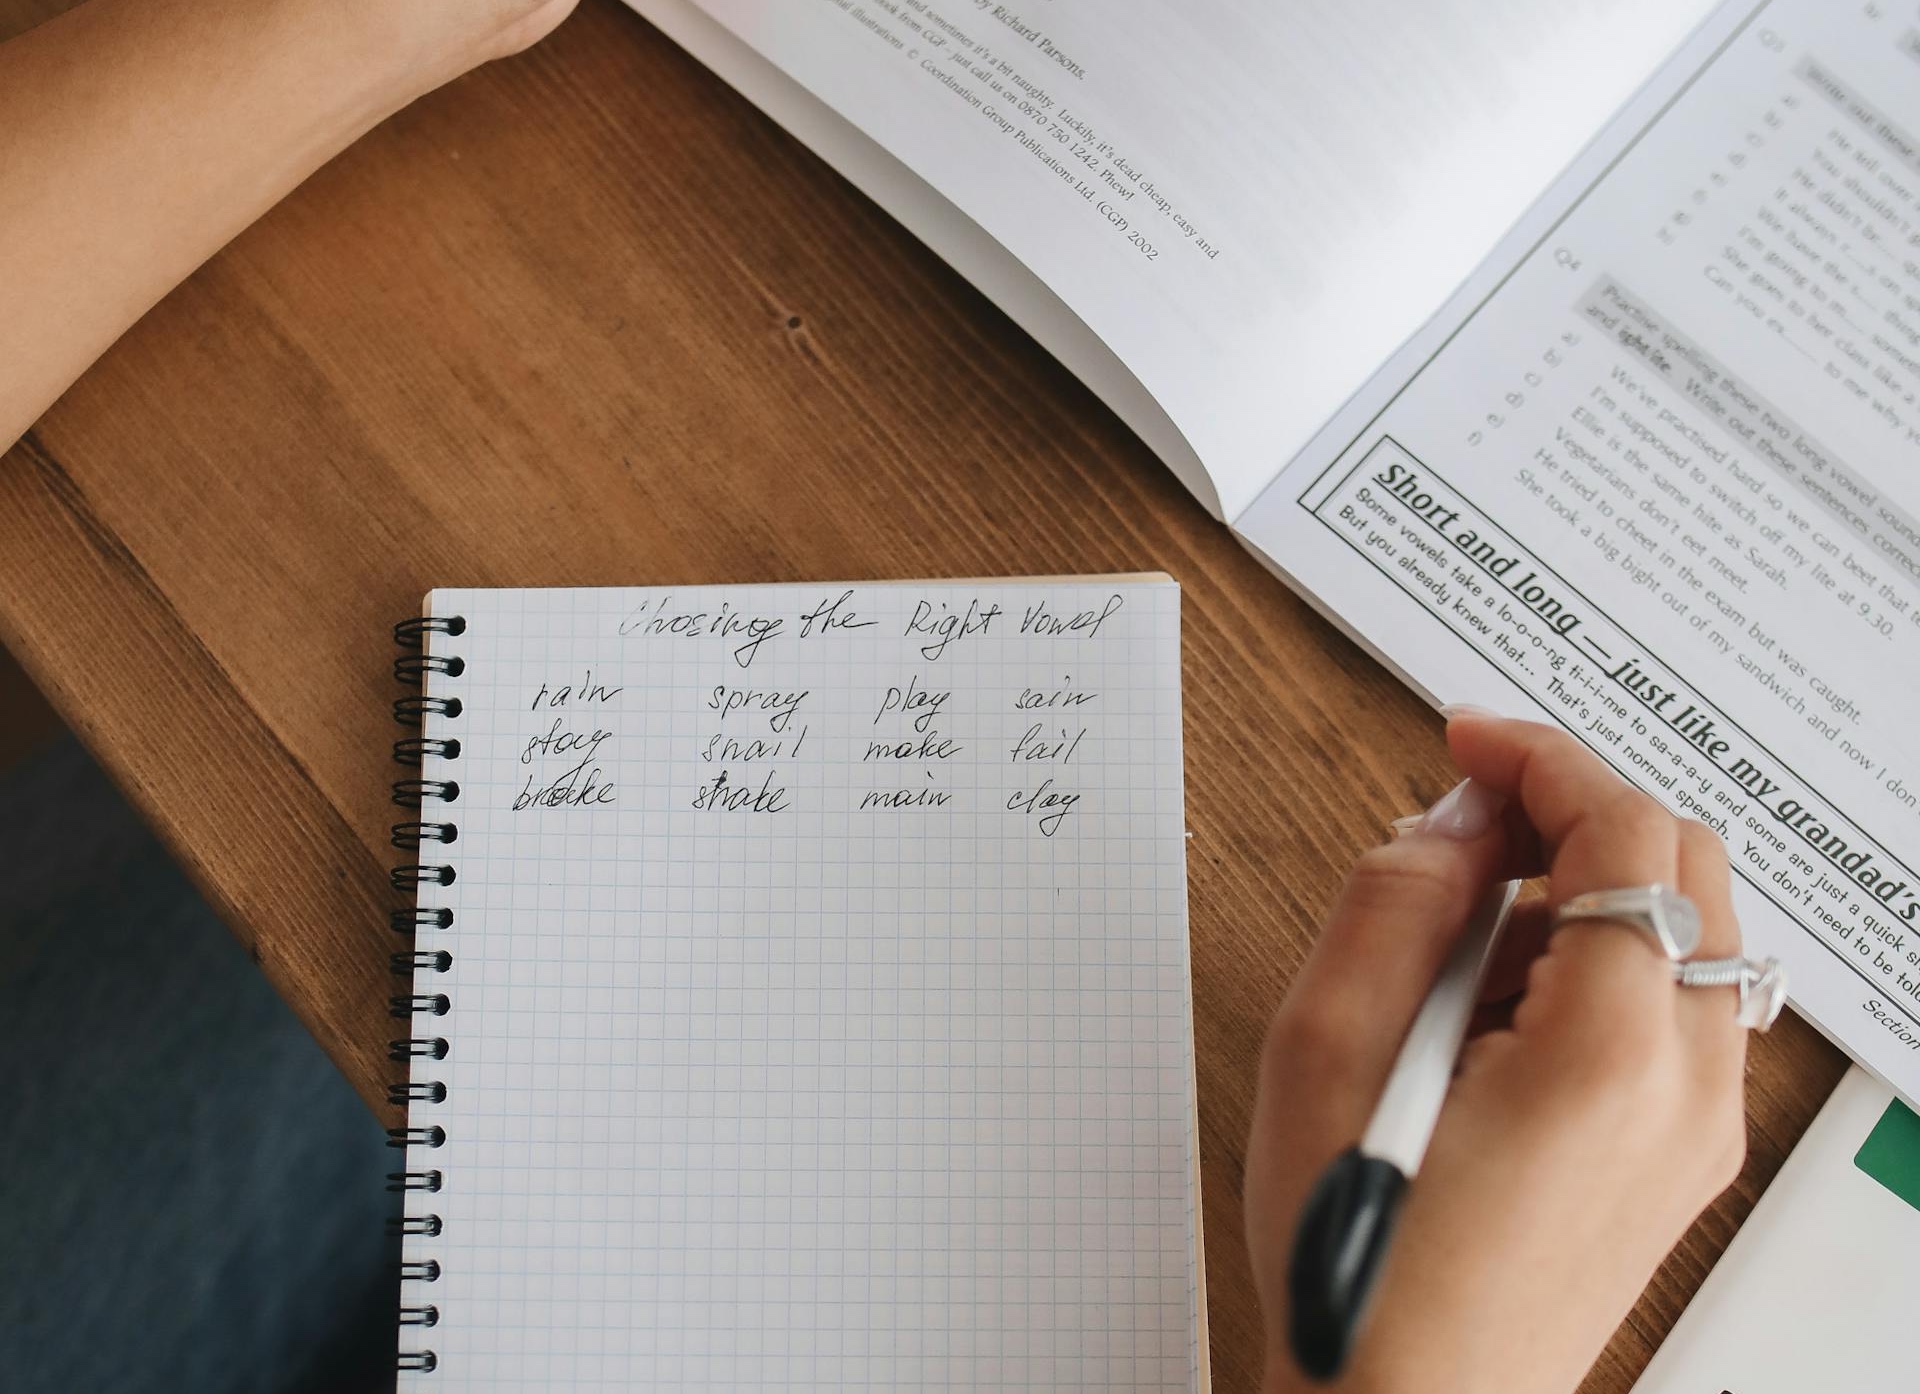 by Richard Parsons.
and sometimes it's a bit naughty. Luckily, it's dead cheap, easy and
book from CGP – just call us on 0870 750 1242. Phew!
illustrations © Coordination Group Publications Ltd. (CGP) 2002
Q3
Write out these
a)
b)
He didn't be
It always
We have the s___s on
I'm going to m___ some
She goes to her class like a
Can you ex___ to me why
Q4
Practise spelling these two long vowel sound
and light/lite. Write out these sentences correc
a) We've practised hard so we can beet that te
b) I'm supposed to switch off my lite at 9.30.
c) Ellie is the same hite as Sarah.
d) Vegetarians don't eet meet.
e) He tried to cheet in the exam but was caught.
f) She took a big bight out of my sandwich and now I don
Short and long — just like my grandad's
Some vowels take a lo-o-o-ng ti-i-i-me to sa-a-a-y and some are just a quick sh
But you already knew that... That's just normal speech. You don't need to be told
Section
Chosing the Right Vowel
rain spray play sain
stay snail make fail
brake shake main clay